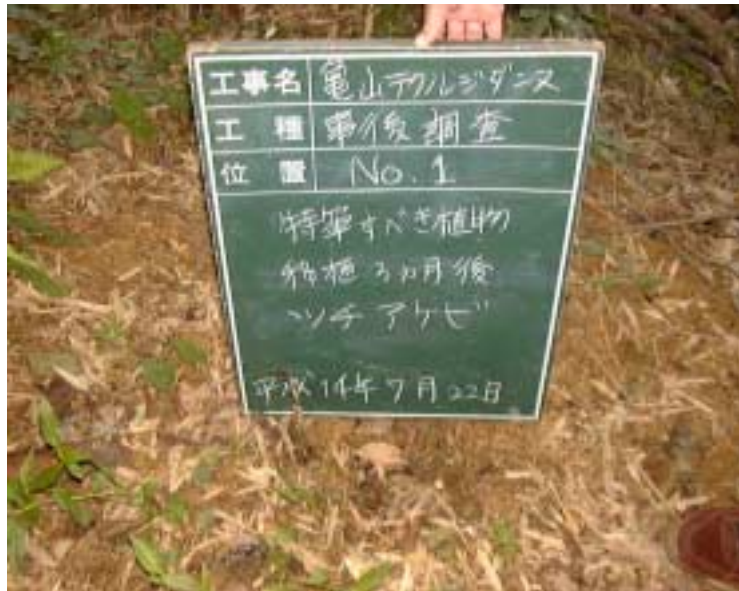 工事名 亀山テクルジダンス
工種 事後調査
位置 No.1
特筆すべき植物
移植3ヵ月後
ツチアケビ
平成14年7月22日